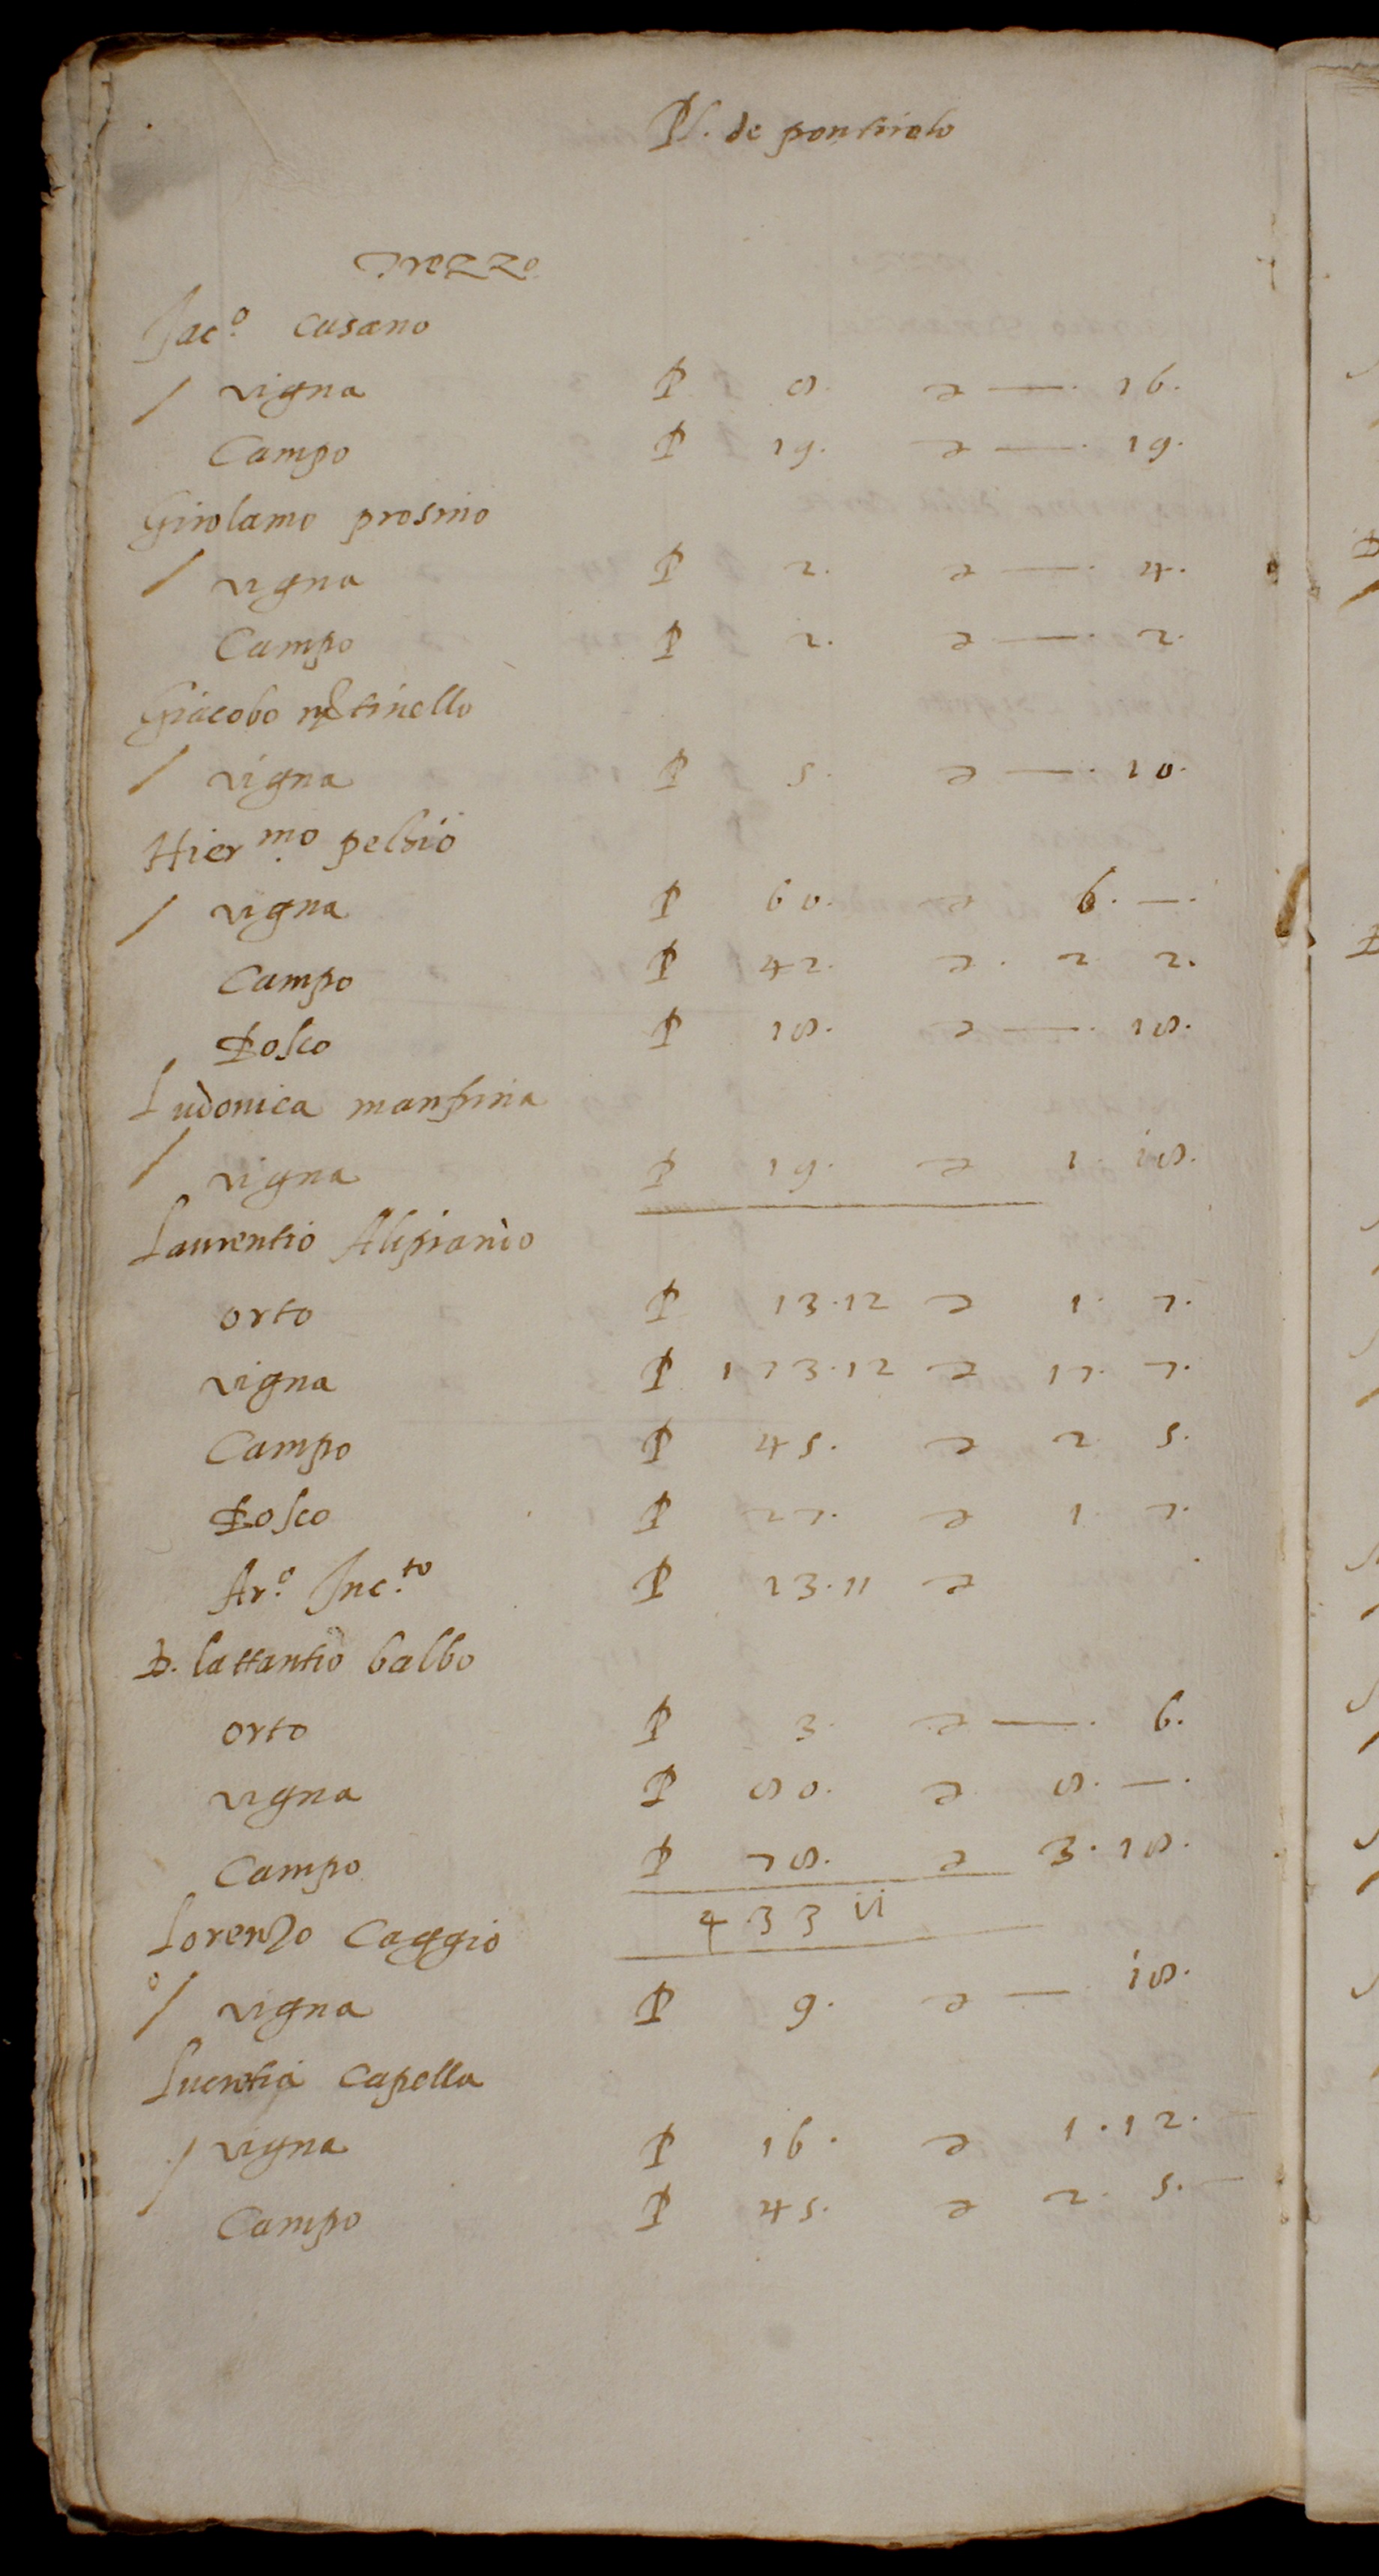 Pl. de pontirolo
Trezzo
Jac.º Cusano
/ vigna P 8. £ —. 16.
Campo P 19. £ —. 19.
Girolamo prosino
/ vigna P 2. £ —. 4.
Campo P 2. £ —. 2.
Giacobo
/ vigna P 5. £ —. 10.
Hier.mo pelsio
/ vigna P 60. £ 6. —.
Campo P 42. £. 2 2.
Bosco P 18. £ —. 18.
Ludovica
/ vigna P 19. £ 1. 18.
Laurentio Aliprando
orto P 13.12 £ 1. 7.
vigna P 173.12 £ 17. 7.
Campo P 45. £ 2 5.
Bosco P 27. £ 1 7.
Ar.º Inc.to P 23.11 £
D. lattantio balbo
orto P 3. £ —. 6.
vigna P 80. £ 8. —.
Campo P 78. £ 3. 18.
433 11
Lorenzo Caggio
º/ vigna P 9. £ — 18.
Lucretia Capella
/ vigna P 16. £ 1. 12.
Campo P 45. £ 2. 5.